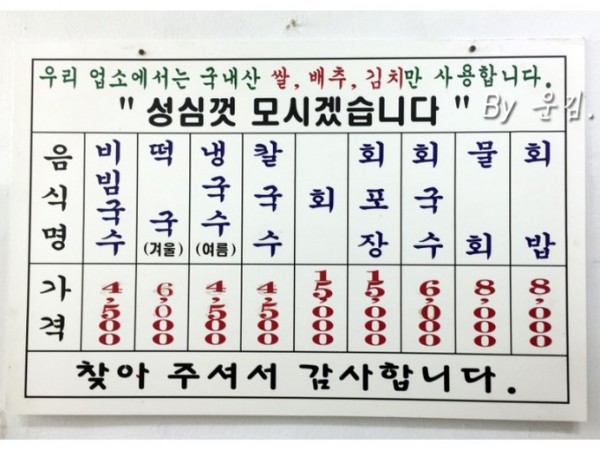 우리 업소에서는 국내산 쌀, 배추, 김치만 사용합니다.
" 성심껏 모시겠습니다 "
By 운김.
음식명 비빔국수 떡국(겨울) 냉국수(여름) 칼국수 회 회포장 회국수 물회 회밥
가격 4,500 6,000 4,500 4,500 15,000 15,000 6,000 8,000 8,000
찾아 주셔서 감사합니다.